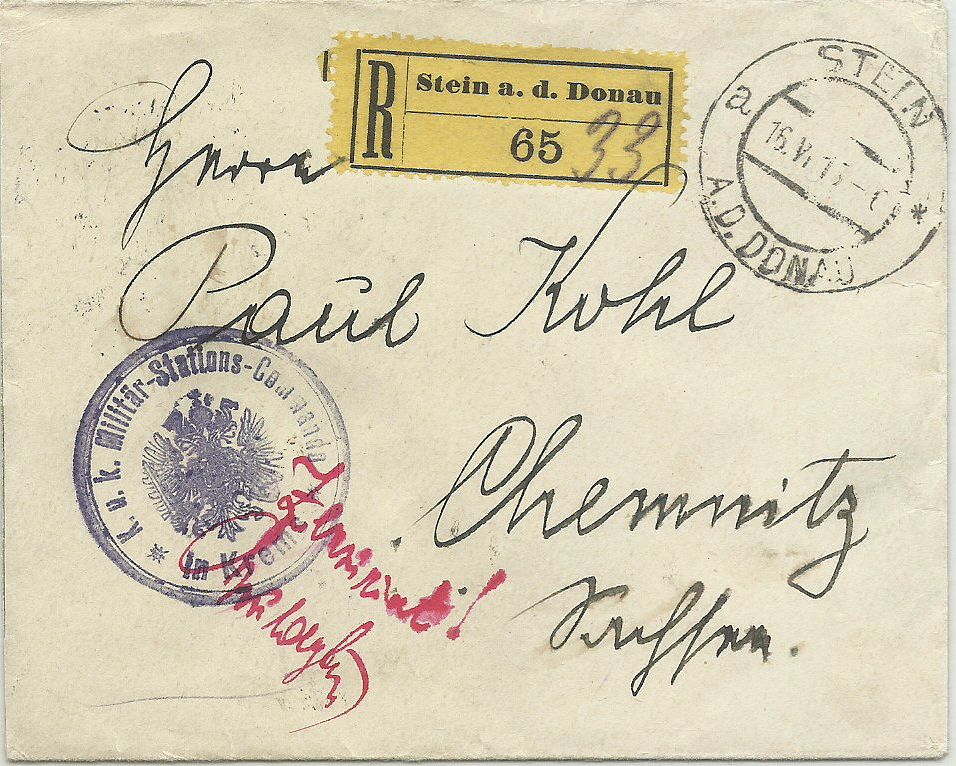 R
Stein a. d. Donau
65 33
STEIN
a
16.VI.15
A.D. DONAU
*
Herrn
Paul Kohl
Chemnitz
Sachsen.
* K. u. k. Militär-Stations-Commando
in Krems
Zensuriert!